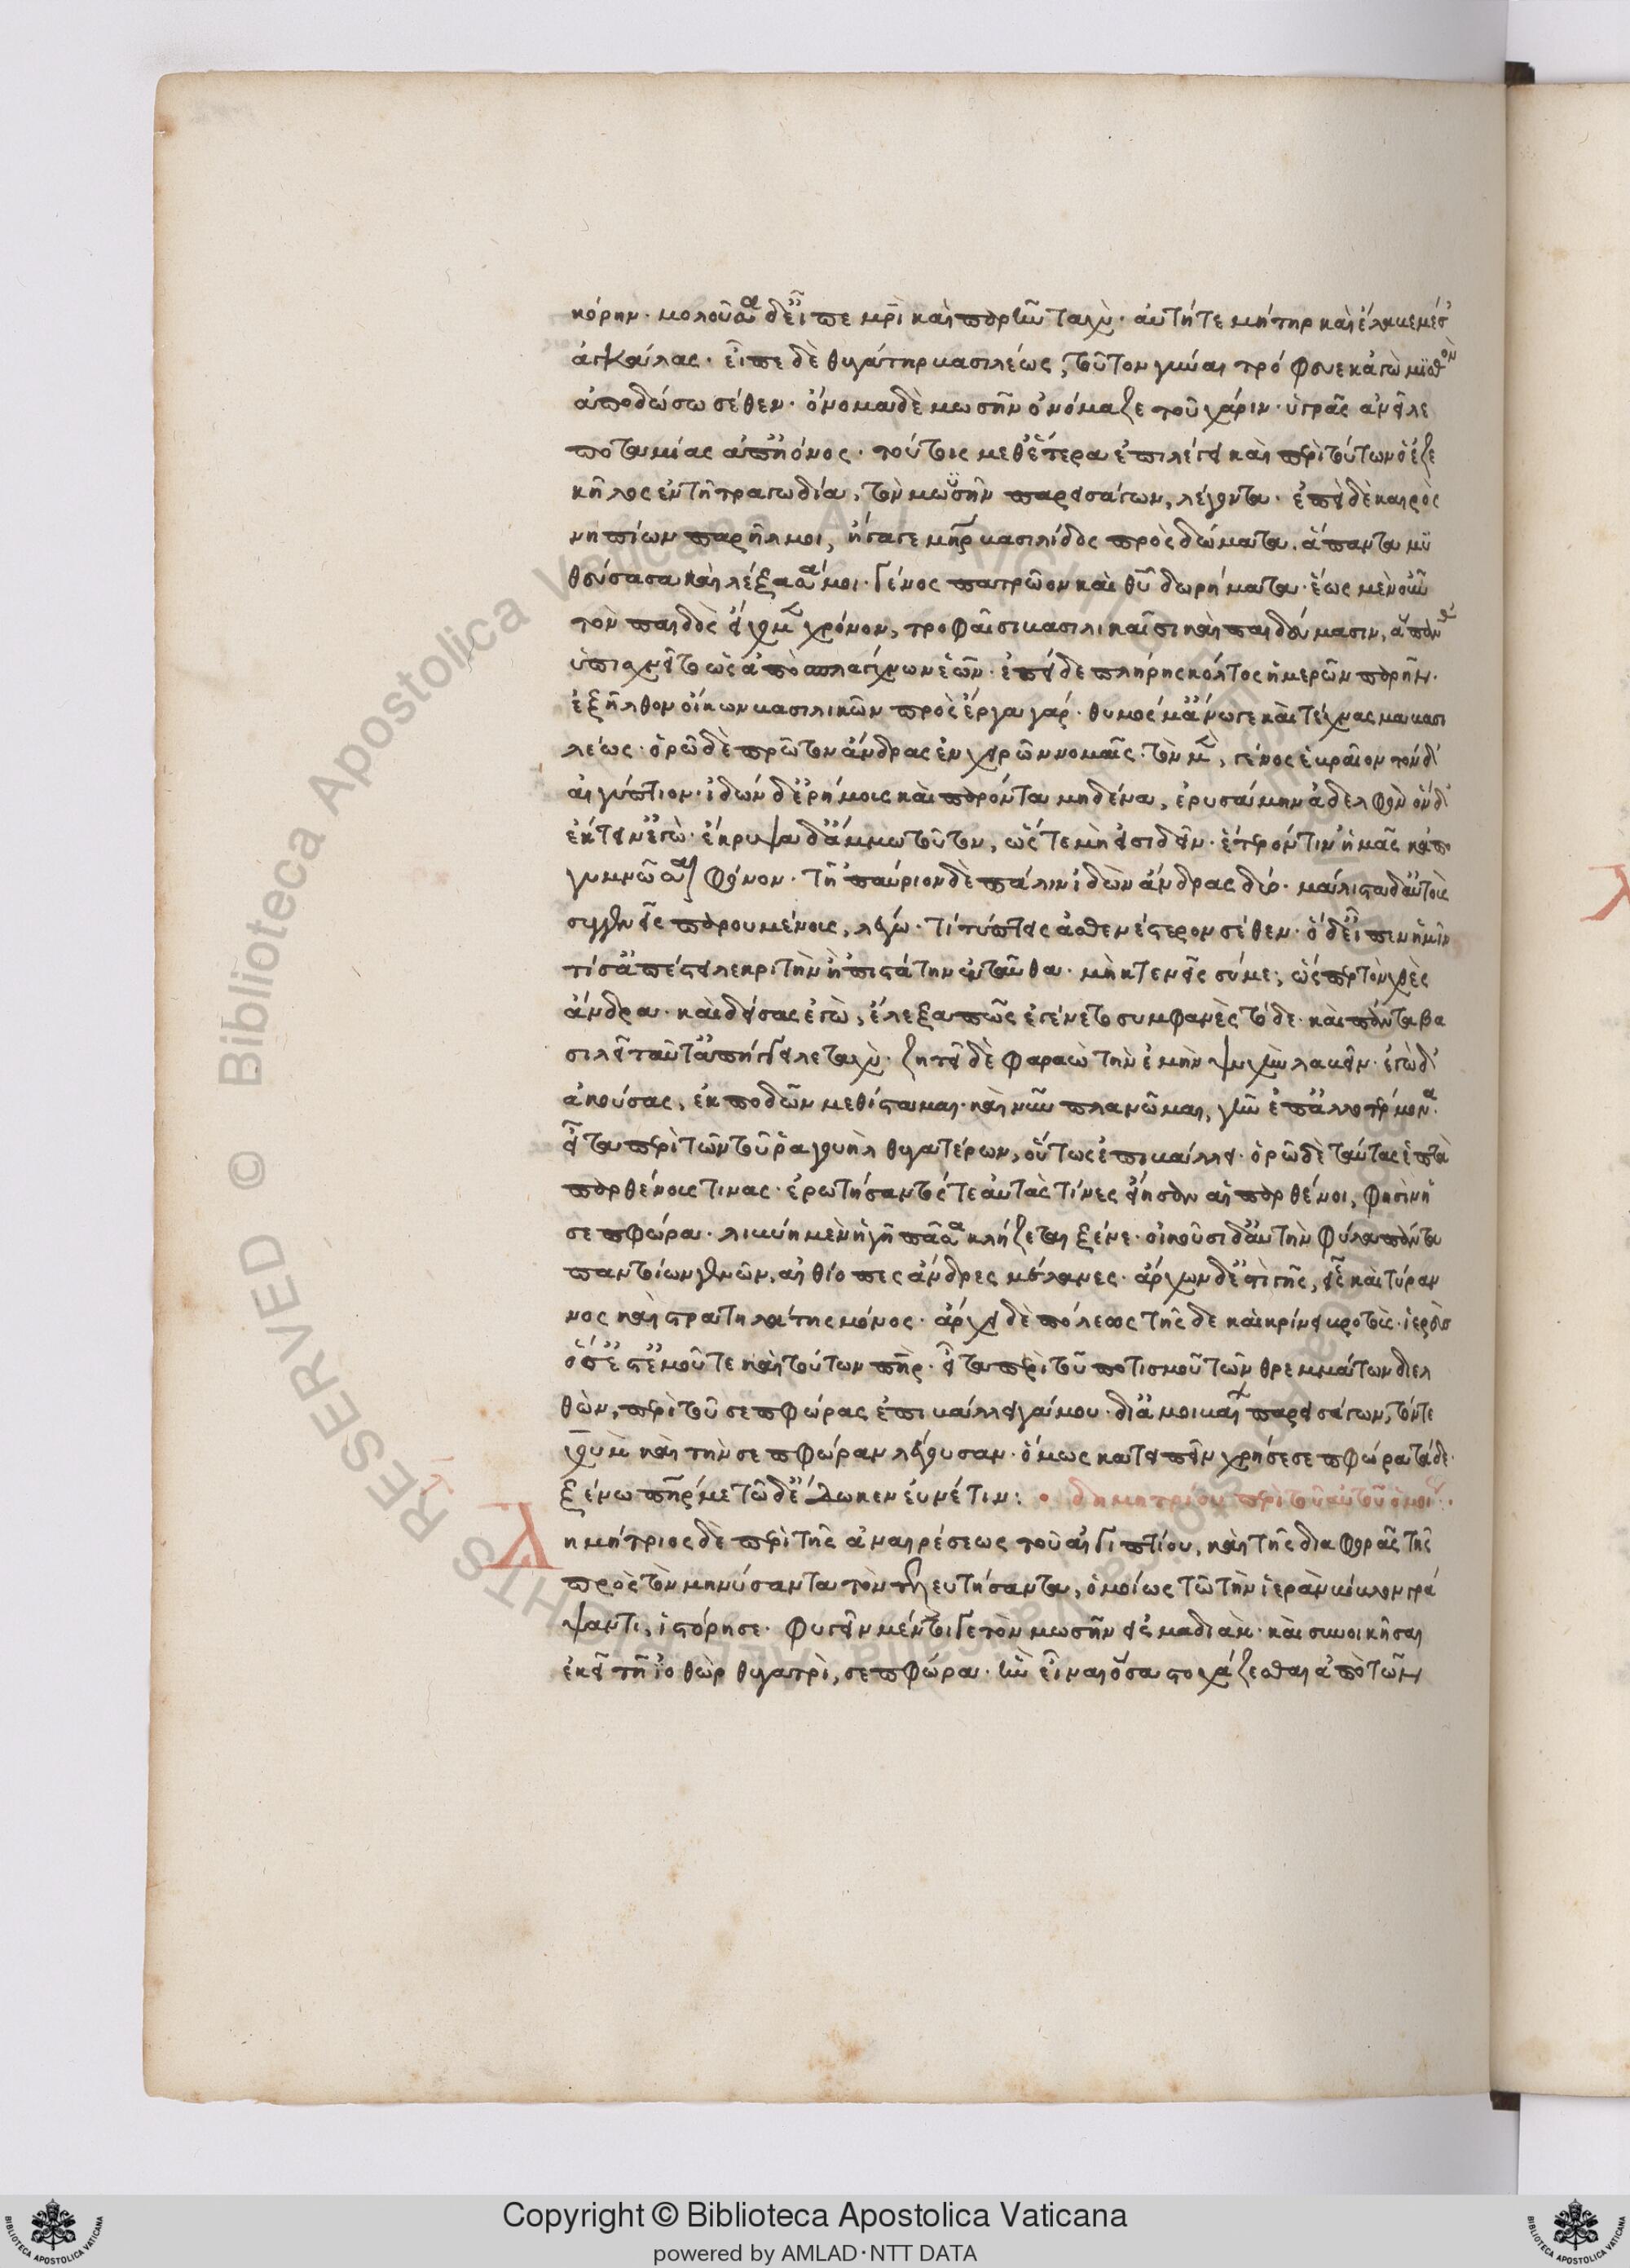 κόρην· μολοῦσα δ' εἶπε μρὶ καὶ παρῆν ταχὺ· αὐτή τε μήτηρ καὶ ἔλαβέ μ' ἐς
ἀγκάλας· εἶπε δὲ θυγάτηρ βασιλέως, τοῦτον γύναι τρόφευε κἀγὼ μισθὸν
ἀποδώσω σέθεν· ὄνομα δὲ μωσῆν ὀνόμαζε τοῦ χάριν· ὑγρᾶς ἀνεῖλε
ποταμίας ἀπ' ἠόνος· τούτοις μεθ' ἕτερα ἐπιλέγει καὶ περὶ τούτων ὁ ἐζε
κῆλος ἐν τῇ τραγωδία, τὸν μωυσῆν παρεισάγων, λέγοντα· ἐπεὶ δὲ καιρὸς
νηπίων παρῆλθέ μοι, ἦγέ με μηρ βασιλίδος πρὸς δώματα. ἅπαντα μυ
θεύσασα καὶ λέξασά μοι· γένος πατρῶον καὶ θυ δωρήματα· ἕως μὲν οὖν
τὸν παιδὸς εἴχομεν χρόνον, τροφαῖσι βασιλικαῖσι καὶ παιδεύμασιν, ἅπανθ'
ὑπισχνεῖτο ὡς ἀπὸ σπλάγχνων ἑῶν· ἐπεὶ δὲ πλήρης κόλπος ἡμερῶν παρῆν·
ἐξῆλθον οἴκων βασιλικῶν πρὸς ἔργα γάρ· θυμός μ' ἄνωγε καὶ τέχνασμα βασι
λέως· ὁρῶ δὲ πρῶτον ἄνδρας ἐν χειρῶν νομαῖς· τὸν μὲν, γένος ἑβραῖον τὸν δ'
αἰγύπτιον· ἰδὼν δ' ἐρήμους καὶ παρόντα μηδένα, ἐρυσάμην ἀδελφὸν ὃν δ'
ἔκτειν' ἐγώ· ἔκρυψα δ' ἄμμω τοῦτον, ὥστε μὴ εἰσιδεῖν· ἕτερόν τιν' ἡμᾶς κἀπο
γυμνῶσαι φόνον· τῇ παύριον δὲ πάλιν ἰδὼν ἄνδρας δύο· μάλιστα δ' αὐτοὺς
συγγενεῖς πατουμένους, λέγω· τί τύπτεις ἀσθενέστερον σέθεν· ὁ δ' εἶπεν ἡμῖν
τίς σ' ἀπέστειλε κριτὴν ἢ 'πιστάτην ἐνταῦθα· μὴ κτενεῖς σύ με, ὥσπερ τὸν χθὲς
ἄνδρα· καὶ δείσας ἐγὼ, ἔλεξα πῶς ἐγένετο συμφανὲς τόδε· καὶ πάντα βα
σιλεῖ ταῦτ' ἀπήγγειλε ταχὺ· ζητεῖ δὲ φαραὼ τὴν ἐμὴν ψυχὴν λαβεῖν· ἐγὼ δ'
ἀκούσας, ἐκποδὼν μεθίσταμαι· καὶ νῦν πλανῶμαι, γῆν ἐπ' ἀλλοτέρμονα·
εἶτα περὶ τῶν τοῦ ῥαγουὴλ θυγατέρων, οὕτως ἐπιβάλλει· ὁρῶ δὲ ταύτας ἑπτὰ
παρθένους τινας· ἐρωτήσαντός τε αὐτὰς τίνες εἴησαν αἱ παρθένοι, φησὶν ἡ
σεπφώρα· λιβύη μὲν ἡ γῆ πᾶσα κλήζεται ξένε· οἰκοῦσι δ' αὐτὴν φῦλα παντα
παντοίων γενῶν, αἰθίοπες ἄνδρες μέλανες· ἄρχων δ' ἐστὶ γῆς, εἷς καὶ τύραν
νος καὶ στρατηλάτης μόνος· ἄρχει δὲ πόλεως τῆσδε καὶ κρίνει βροτοὺς· ἱερεὺς
ὅς ἐστ' ἐμοῦ τε καὶ τούτων πηρ· εἶτα περὶ τοῦ ποτισμοῦ τῶν θρεμμάτων διελ
θὼν, περὶ τοῦ σεπφώρας ἐπιβάλλει γάμου· δι' ἀμοιβαίων παρεισάγων, τόν τε
χοὺμ καὶ τὴν σεπφώραν λέγουσαν· ὅμως κατειπεῖν χρή σε σεπφώρα τάδε·
ξένω πηρ με τῷδ' ἔδωκεν εὐνέτιν: · δημητρίου περὶ τοῦ αὐτοῦ ὁμοίως·
Δημήτριος δὲ περὶ τῆς ἀναιρέσεως τοῦ αἰγυπτίου, καὶ τῆς διαφορᾶς τῆς
πρὸς τὸν μηνύσαντα τὸν τελευτήσαντα, ὁμοίως τῷ τὴν ἱερὰν βίβλον γρά
ψαντι, ἱστόρησε· φυγεῖν μέντοι γε τὸν μωσῆν εἰς μαδιὰμ· καὶ συνοικῆσαι
ἐκεῖ τῇ ἰοθὼρ θυγατρὶ, σεπφώρα· ἣν εἶναι ὅσα στοχάζεσθαι ἀπὸ τῶν
Copyright © Biblioteca Apostolica Vaticana
powered by AMLAD·NTT DATA